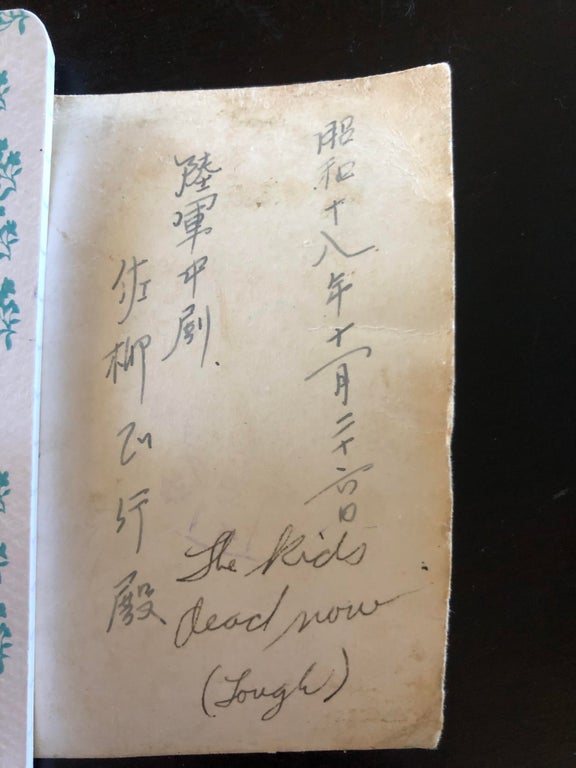 昭和十八年十一月二十六日
陸軍中尉
佐柳行殿
The kids
dead now
(Tough)